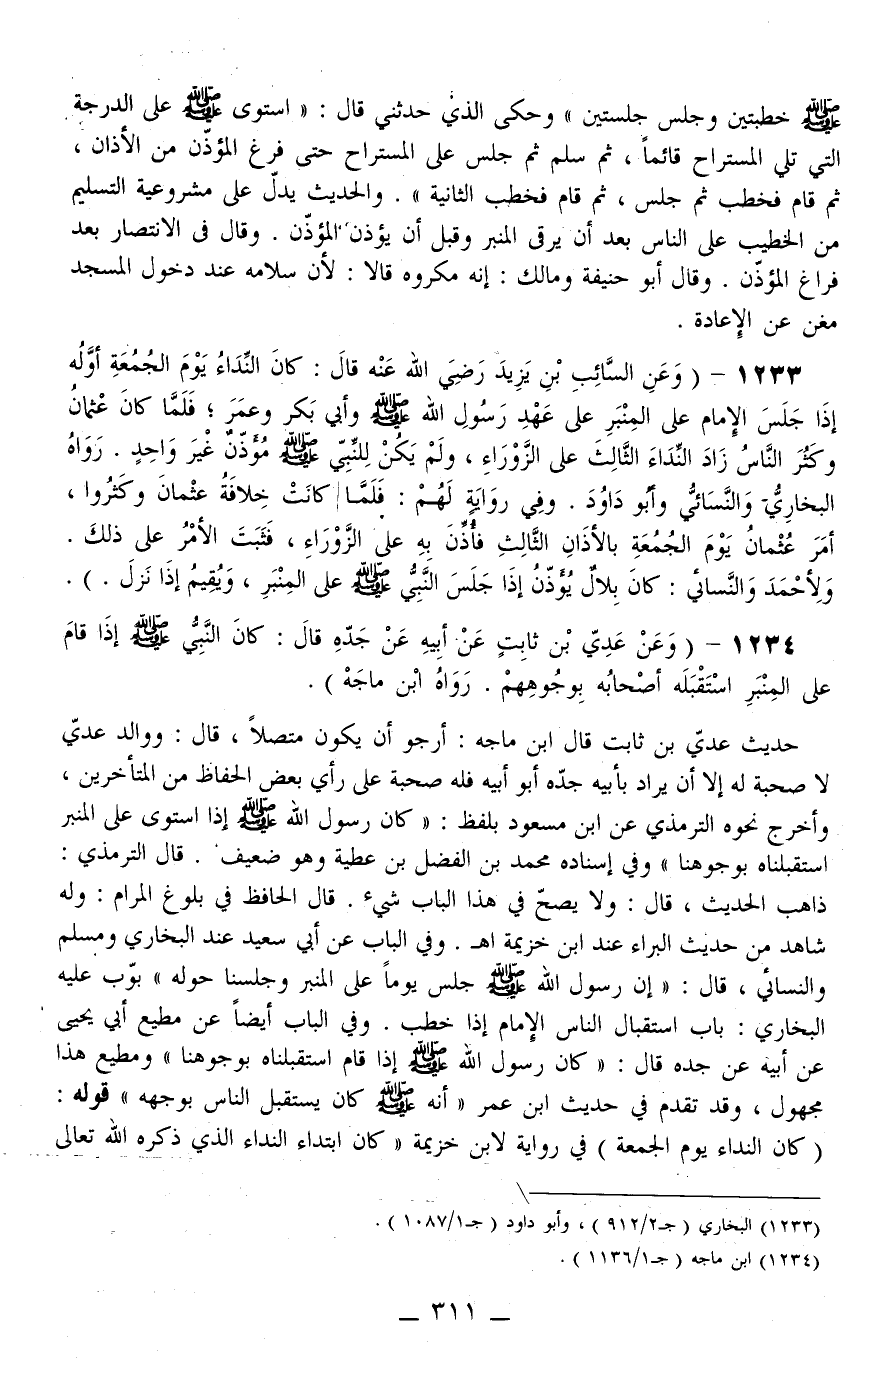 ﷺ خطبتين وجلس جلستين » وحكى الذي حدثني قال : « استوى ﷺ على الدرجة
التي تلي المستراح قائماً ، ثم سلم ثم جلس على المستراح حتى فرغ المؤذّن من الأذان ،
ثم قام فخطب ثم جلس ، ثم قام فخطب الثانية » . والحديث يدلّ على مشروعية التسليم
من الخطيب على الناس بعد أن يرقى المنبر وقبل أن يؤذن المؤذّن . وقال فى الانتصار بعد
فراغ المؤذّن . وقال أبو حنيفة ومالك : إنه مكروه قالا : لأن سلامه عند دخول المسجد
مغن عن الإعادة .
١٢٣٣ – ( وَعَنِ السَّائِبِ بْنِ يَزِيدَ رَضِيَ الله عَنْه قالَ : كانَ النِّدَاءُ يَوْمَ الجُمُعَةِ أوَّلُه
إذَا جَلَسَ الإمام على المِنْبَرِ على عَهْدِ رَسُولِ الله ﷺ وأبي بَكر وعمَرَ ؛ فَلَمَّا كانَ عُثمانُ
وكَثُرَ النَّاسُ زَادَ النِّدَاءَ الثَّالِثَ على الزَّوْرَاءِ ، ولَمْ يَكُنْ لِلنَّبِيّ ﷺ مُؤَذّنٌ غَيْرَ وَاحِدٍ . رَوَاهُ
البخاريُّ وَالنَّسَائيُّ وأبُو دَاوُدَ . وفِي روَايَةٍ لَهُمْ : فَلَمَّا كانَتْ خِلافَةُ عثمانَ وكَثُروا ،
أمَرَ عُثْمانُ يَوْمَ الجُمُعَةِ بالأذَانِ الثَّالِثِ فأُذِّنَ بِهِ على الزَّوْرَاءِ ، فَثَبَتَ الأمْرُ على ذلكَ .
وَلِأحْمَدَ وَالنَّسائي : كانَ بِلالٌ يُؤَذّنُ إذَا جَلَسَ النَّبِيُّ ﷺ على المِنْبَرِ ، وَيُقِيمُ إذَا نَزلَ . ) .
١٢٣٤ – ( وَعَنْ عَدِيّ بْن ثابِتٍ عَنْ أبيهِ عَنْ جَدّهِ قالَ : كانَ النَّبِيُّ ﷺ إذَا قامَ
على المِنْبَرِ اسْتَقْبَلَه أصْحابُه بِوجُوهِهِمْ . رَوَاهُ ابْن ماجَهْ ) .
حديث عديّ بن ثابت قال ابن ماجه : أرجو أن يكون متصلاً ، قال : ووالد عديّ
لا صحبة له إلا أن يراد بأبيه جدّه أبو أبيه فله صحبة على رأي بعض الحفاظ من المتأخرين ،
وأخرج نحوه الترمذي عن ابن مسعود بلفظ : « كان رسول الله ﷺ إذا استوى على المنبر
استقبلناه بوجوهنا » وفي إسناده محمد بن الفضل بن عطية وهو ضعيف . قال الترمذي :
ذاهب الحديث ، قال : ولا يصحّ في هذا الباب شيء . قال الحافظ في بلوغ المرام : وله
شاهد من حديث البراء عند ابن خزيمة اهـ . وفي الباب عن أبي سعيد عند البخاري ومسلم
والنسائي ، قال : « إن رسول الله ﷺ جلس يوماً على المنبر وجلسنا حوله » بوّب عليه
البخاري : باب استقبال الناس الإمام إذا خطب . وفي الباب أيضاً عن مطيع أبي يحيى
عن أبيه عن جده قال : « كان رسول الله ﷺ إذا قام استقبلناه بوجوهنا » ومطيع هذا
مجهول ، وقد تقدم في حديث ابن عمر « أنه ﷺ كان يستقبل الناس بوجهه » قوله :
( كان النداء يوم الجمعة ) في رواية لابن خزيمة « كان ابتداء النداء الذي ذكره الله تعالى
(١٢٣٣) البخاري ( جـ٩١٢/٢ ) ، وأبو داود ( جـ١٠٨٧/١ ) .
(١٢٣٤) ابن ماجه ( جـ١١٣٦/١ ) .
— ٣١١ —